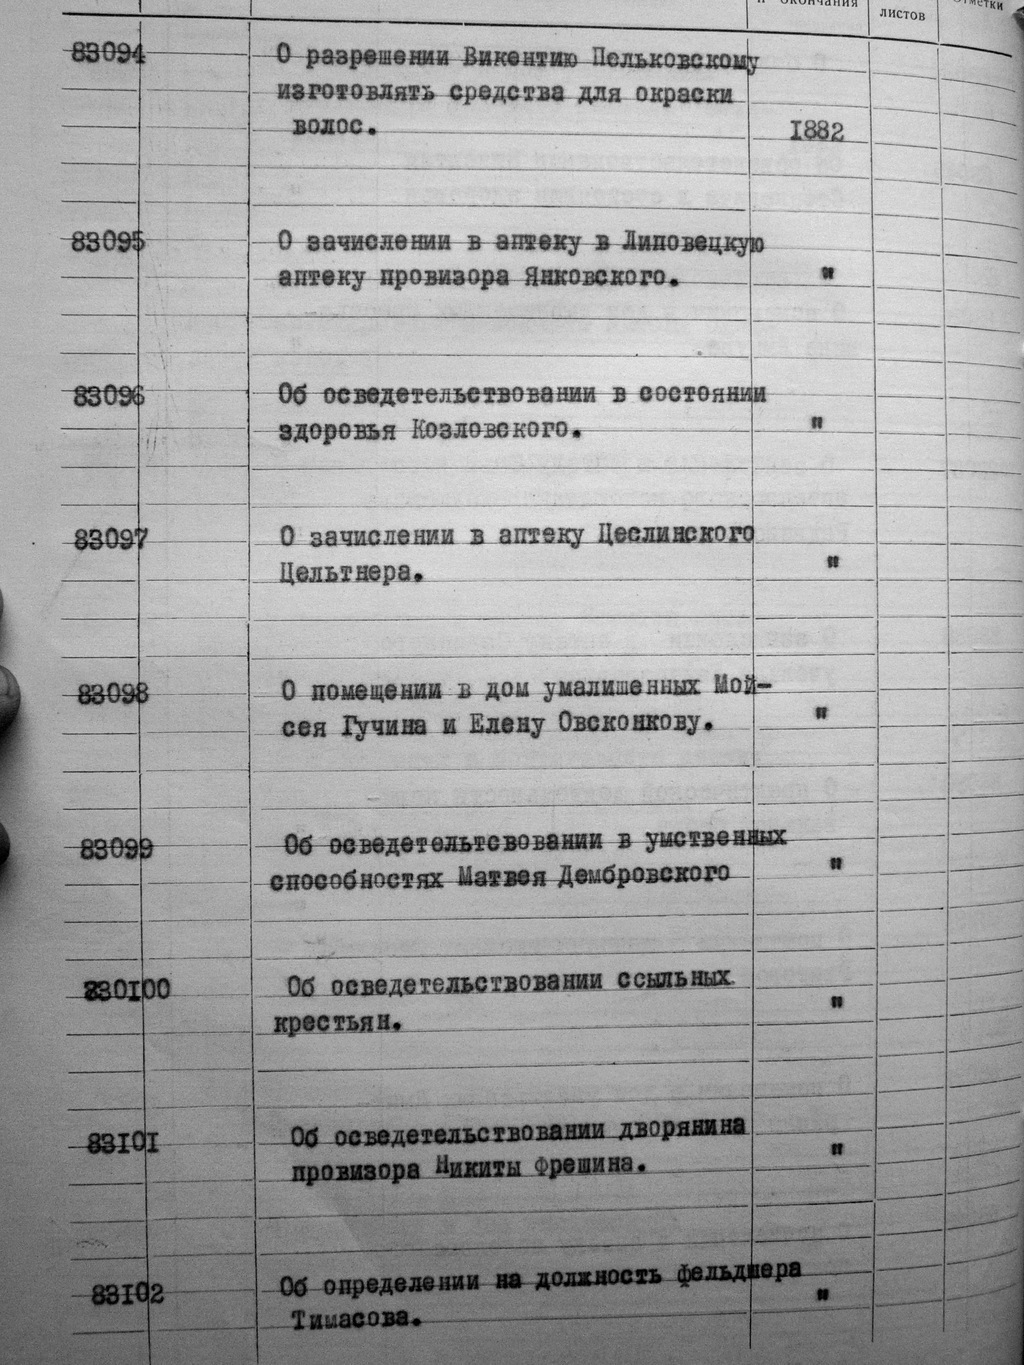 и окончания
листов
Отметки
83094 О разрешении Викентию Пельковскому
изготовлять средства для окраски
волос. 1882
83095 О зачислении в аптеку в Липовецкую
аптеку провизора Янковского. "
83096 Об осведетельствовании в состоянии
здоровья Козловского. "
83097 О зачислении в аптеку Цеслинского
Цельтнера. "
83098 О помещении в дом умалишенных Мой-
сея Гучина и Елену Овсконкову. "
83099 Об осведетельтсвовании в умственных
способностях Матвея Дембровского "
830100 Об осведетельствовании ссыльных
крестьян. "
83101 Об осведетельствовании дворянина
провизора Никиты Фрешина. "
83102 Об определении на должность фельдшера
Тимасова. "